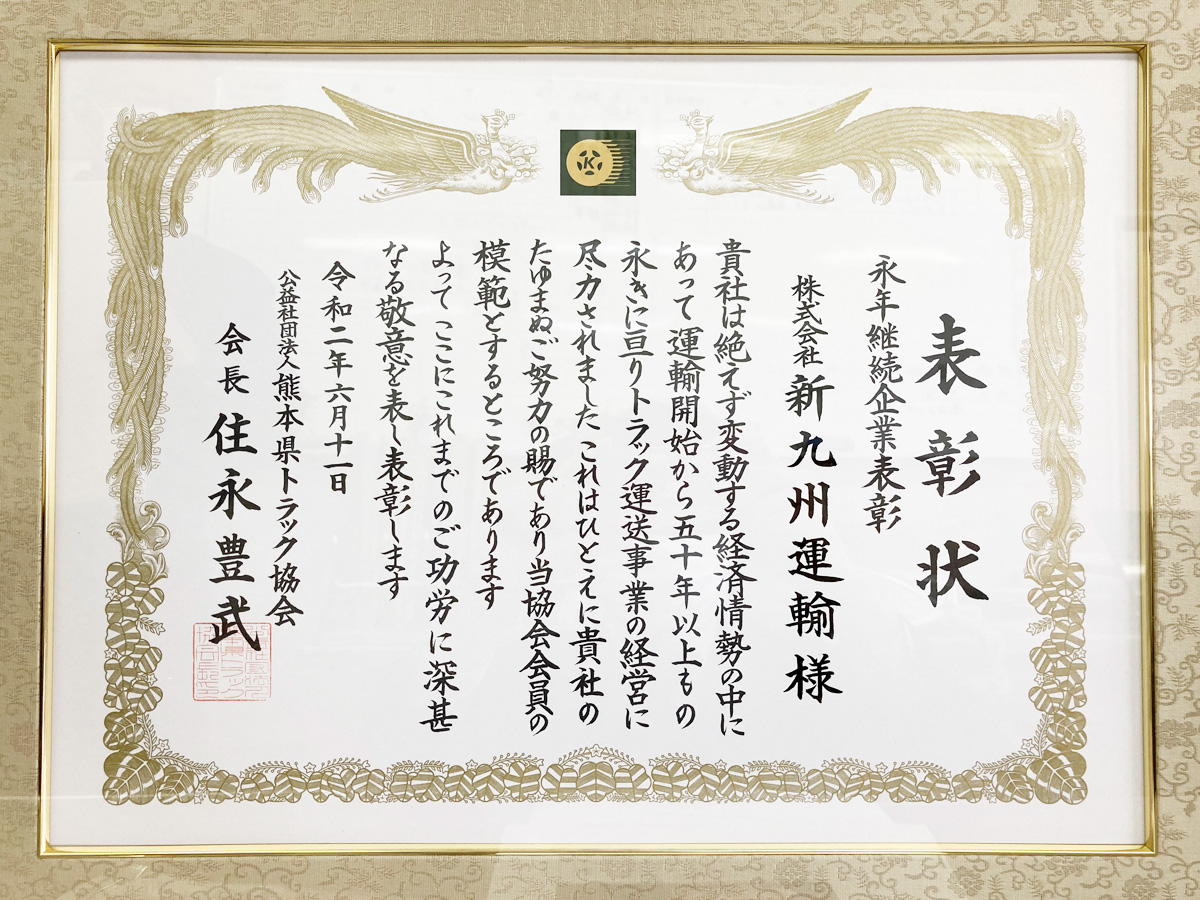 表彰状
永年継続企業表彰
株式会社 新九州運輸様
貴社は絶えず変動する経済情勢の中に
あって運輸開始から五十年以上もの
永きに亘りトラック運送事業の経営に
尽力されました これはひとえに貴社の
たゆまぬご努力の賜であり当協会会員の
模範とするところであります
よって ここにこれまでのご功労に深甚
なる敬意を表し表彰します
令和二年六月十一日
公益社団法人熊本県トラック協会
会長 住永豊武
K